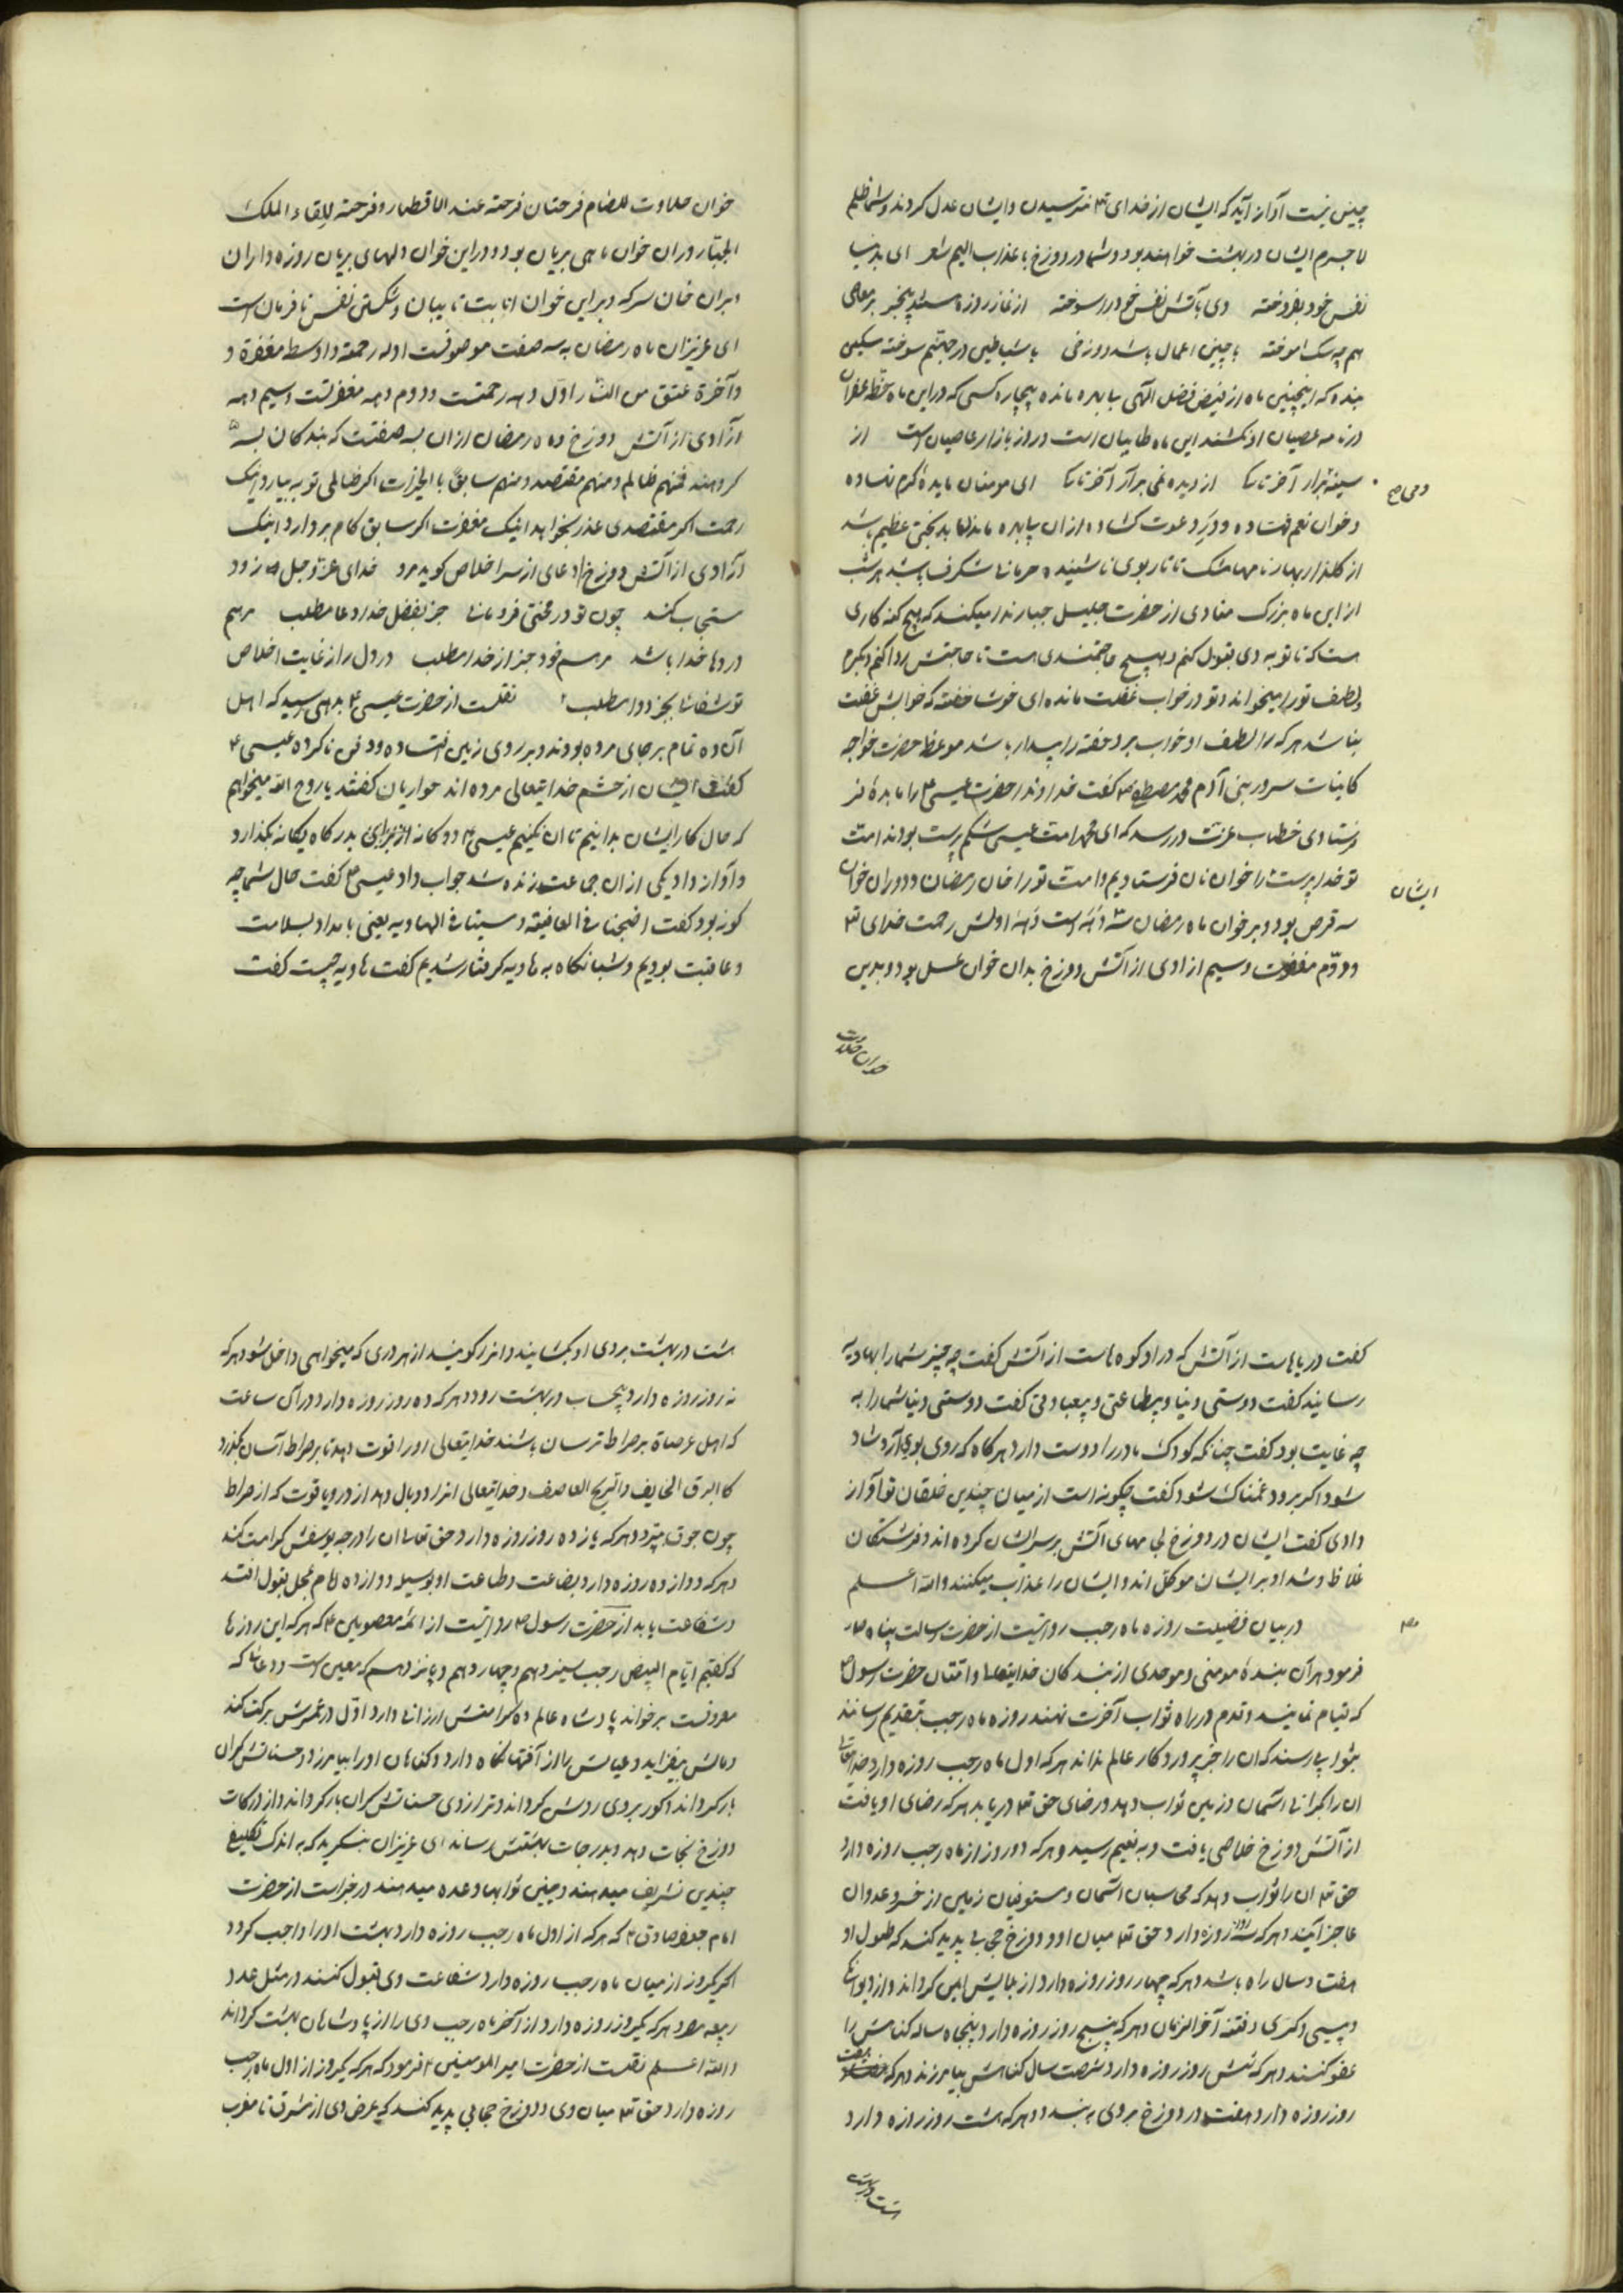 چنین نیست آواز آید که ایشان از خدای تع ترسیدن و ایشان عدل کردند و شما ظلم
لا جرم ایشان در بهشت خواهند بود و شما در دوزخ با عذاب الیم شعر ای بدنیا
نفس خود بفروخته وی بآتش نفس خود را سوخته از نماز روزه بیخبر بر معاصی
هم چو سک اموخته با چنین اعمال باشد دوزخی با شیاطین در جهنم سوخته مسکین
بنده که اینچنین ماه از فیض فضل الهی بی بهره مانده بیچاره کسی که در این ماه خط غفران
در نامه عصیان او نکشند این ماه طایبان است و روز بازار عاصیان است از
سینه برار آخر تا کی از دیده نمی برآر آخر تا کی ای مومنان مایده کرم نهاده
دمی ص
و خوان نعم نهاده و در دعوت کشاده از ان بی بهره ماندن بدبختی عظیم باشد
از کلزار بهار نامها مشک تاتار بوی ناشنیده حرمانی شکرف باشد هر شب
از این ماه بزرک منادی از حضرت جلیل جبار ندا میکند که هیچ کنه کاری
هست که تا توبه وی قبول کنم و هیچ حاجتمندی هست تا حاجتش روا کنم و کرم
و لطف تو را میخواند و تو در خواب غفلت مانده ای خوشا خفته که خوابش غفلت
نباشد هر که را لطف او خواب برد خفته را بیدار باشد موعظه حضرت خواجه
کاینات سرور بنی آدم محمد مصطفی ص کفت خداوندا حضرت عیسی ع را مایده نز
فرستادی خطاب عزت در رسد که ای محمد امت عیسی شکم پرست بودند امت
تو خدا پرست را خوان نان فرستادیم و امت تو را خان رمضان و در ان خوان
ایشان
سه قرص بود و بر خوان ماه رمضان سه دهه است دهه اولش رحمت خدای تع
و دوّم مغفرت و سیم ازادی از آتش دوزخ بدان خوان عسل بود و بدین
خوان حلاوت
خوان حلاوت للصایم فرحتان فرحته عند الافطار و فرحته للقاء الملک
الجبّار و ران خوان ماهی بریان بود و در این خوان دلهای بریان روزه داران
و بران خان سرکه و بر این خوان انابت تایبان و شکستن نفس نافرمان است
ای عزیزان ماه رمضان به سه صفت موصوفست اوله رحمة و اوسط مغفرة و
و آخرة عتق من النّار اول دهه رحمتست و دوم دهه مغفرتست و سیم دهه
ازادی از آتش دوزخ و ماه رمضان از ان بسه صفتت که بندکان بسه
کروهند فمنهم ظالم و منهم مقتصد و منهم سابق با الخیرات اکر ظالمی توبه بیارد اینک
رحمت اکر مقتصدی عذر بخواهد اینک مغفرت اکر سابق کام بردارد اینک
آزادی از آتش دوزخ ادعای از سر اخلاص کوید مرد خدای عز و جل زود
مستجاب کند چون تو در محنتی فرومانی جز بفضل خدا دعا مطلب مرهم
دردها خدا باشد مرهم خود جز از خدا مطلب درد دل را از غایت اخلاص
تو شفاها بجز دوا مطلب نقلست از حضرت عیسی ع بدهی رسید که اهل
آن ده تمام بر جای مرده بودند و بر روی زمین فتاده و دفن ناکرده عیسی ع
کفت ایشان از خشم خدایتعالی مرده اند حواریان کفتند یا روح الله میخواهیم
که حال کار ایشان بدانیم تا ان نکنیم عیسی ع دوکانه از برای بدرکاه یکانه بکذارد
و آواز داد یکی از ان جماعت زنده شد جواب داد عیسی ع کفت حال شما چه
کونه بود کفت اضجعنا فی العافیته و سیتا فی الهاویه یعنی بامداد بسلامت
و عافیت بودیم و شبانکاه به هاویه کرفتار شدیم کفت هاویه چیست کفت
کفت دریاهاست از آتش که در او کوه هاست از آتش کفت چه چیز شما را بهاویه
رسانید کفت دوستی دنیا و بیطاعتی و بیعبادتی کفت دوستی دنیا شما را به
چه غایت بود کفت چنانکه کودک مادر را دوست دارد هرکاه که روی بوی آرد شاد
شود اکر برود غمناک شود کفت چکونه است از میان چندین خلقان تو آواز
دادی کفت ایشان در دوزخ لجامهای آتش بر سر ایشان کرده اند و فرشتکان
غلاظ و شداد بر ایشان موکل اند و ایشان را عذاب میکنند والله اعلم
در بیان فضیلت روزه ماه رجب روایتست از حضرت رسالت پناه ص
فرمود هر آن بنده مومنی و موحدی از بندکان خدایتعالی و امتان حضرت رسول ص
که قیام نمایند و قدم در راه ثواب آخرت نهند روزه ماه رجب بتقدیم رسانند
بثوابی رسند که ان را جز پروردکار عالم نداند هر که اول ماه رجب روزه دارد خدایتعالی
ان را کرانی آسمان و زمین ثواب دهد و رضای حق تع دریابد هر که رضای او یافت
از آتش دوزخ خلاصی یافت و به نعیم رسید و هر که دو روز از ماه رجب روزه دارد
حق تع ان را ثواب دهد که محاسبان آسمان و مستوفیان زمین از حسر و عد وان
عاجز آیند و هر که سه روز روزه دارد حق تع میان او و دوزخ حجابی پدید کند که طول او
هفتاد سال راه باشد و هر که چهار روز روزه دارد از بلاهایش ایمن کرداند و از دیوانکی
و پیسی و کری و فتنه آخر الزمان و هر که پنج روز روزه دارد پنجاه ساله کناهش را
عفو کنند و هر که شش روز روزه دارد شصت سال کناهش بیامرزند و هر که هفت
روز روزه دارد هفت در دوزخ بروی ببندد و هر که هشت روز روزه دارد
هشت در بهشت
هشت در بهشت بروی او بکشایند و انرا کویند از هر دری که میخواهی داخل شو و هر که
نه روز روزه دارد بیحساب در بهشت رود و هر که ده روز روزه دارد در آن ساعت
که اهل عرصاة بر صراط ترسان باشند خدایتعالی او را قوت دهد تا بر صراط آسان بکذرد
کا البرق الخایف و الریح العاصف و خدایتعالی انرا دو بال دهد از در و یاقوت که از صراط
چون جوق بپرد و هر که یازده روز روزه دارد حق تعالی ان را درجه یوسفش کرامت کند
و هر که دوازده روزه دارد بضاعت و طاعت او بوسیله دوازده امام بمحل قبول افتد
و شفاعت یابد از حضرت رسول ص روایتست از ائمة معصومین ع که هر که این روزها
که کفتیم ایّام البیض رجب سیزدهم و چهاردهم و پانزدهم که معین است و دعائی که
معروفست برخواند پادشاه عالم ده کرامتش ارزانی دارد اوّل در عمرش برکت کند
و مالش بیفزاید و عیالش را از آفتها نکاه دارد و کناهان او را بیامرزد و حسناتش کران
بار کرداند و کور بروی روشن کرداند و ترازوی حسناتش کران بار کرداند و از درکات
دوزخ نجات دهد و بدرجات بهشتش رساند ای عزیزان بنکرید که به اندک تکلیف
چندین تشریف میدهند و چنین ثوابها وعده میدهند در خبر است از حضرت
امام جعفر صادق ع که هر که از اول ماه رجب روزه دارد بهشت او را واجب کردد
اکر یکروز از میان ماه رجب روزه دارد شفاعت وی قبول کنند در مثل عدد
ربیعه و هر که یکروز روزه دارد از آخر ماه رجب وی را از پادشاهان بهشت کرداند
والله اعلم نقلست از حضرت امیر المومنین ع فرمود که هر که یکروز از اول ماه رجب
روزه دارد حق تع میان وی و دوزخ حجابی پدید کند که عرض وی از مشرق تا مغرب